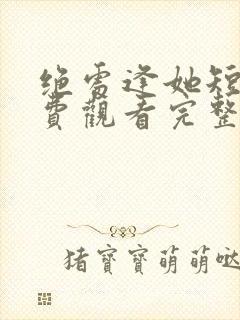 绝处逢她短
费觀看完整
猪寶寶萌萌哒